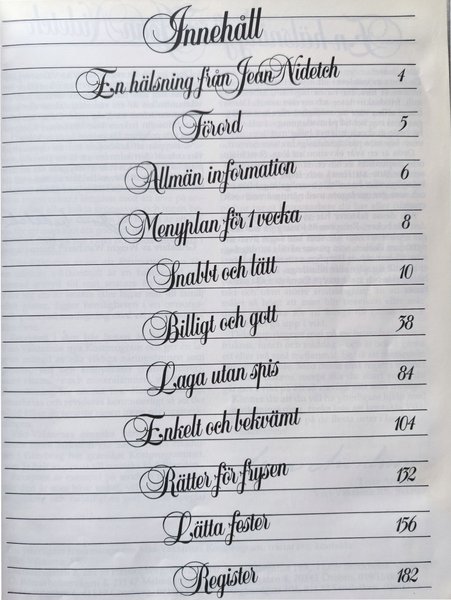 Innehåll
En hälsning från Jean Nidetch 4
Förord 5
Allmän information 6
Menyplan för 1 vecka 8
Snabbt och lätt 10
Billigt och gott 38
Laga utan spis 84
Enkelt och bekvämt 104
Rätter för frysen 132
Lätta fester 156
Register 182